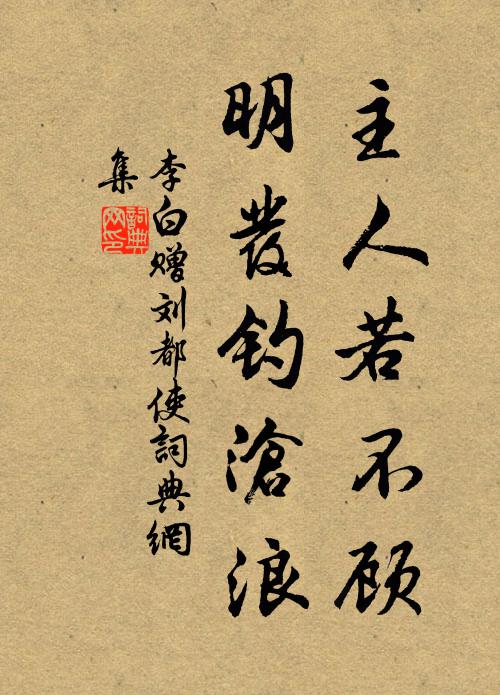 主人若不顾
明發钓滄浪
李白赠刘都使詞典網
集
詞典
网印